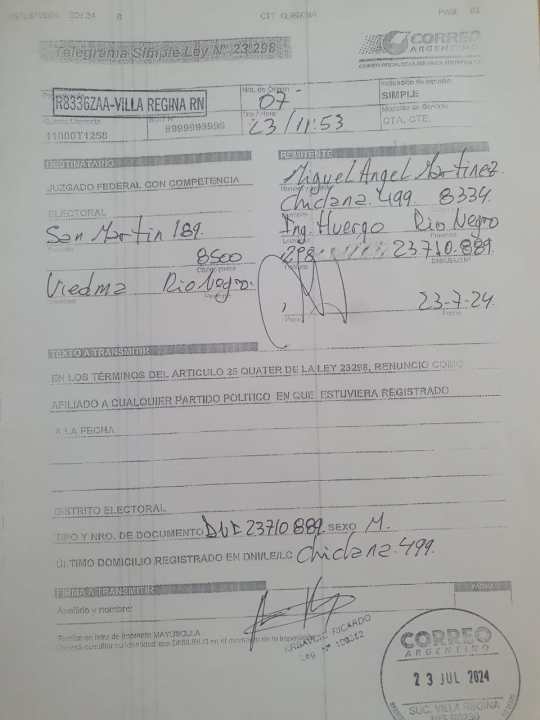 PAGE 01
Telegrama Simple Ley N° 23.298
CORREO
ARGENTINO
R8336ZAA-VILLA REGINA RN
07
SIMPLE
23/11:53
CTA. CTE.
11000T1258
9999999999
DESTINATARIO
REMITENTE
JUZGADO FEDERAL CON COMPETENCIA
ELECTORAL
Miguel Angel Martinez
Chiclana 499 8334
San Martin 189
Ing. Huergo Rio Negro
8500
298
23710.889
Viedma Rio Negro
23-7-24
Firma
Fecha
TEXTO A TRANSMITIR
EN LOS TÉRMINOS DEL ARTICULO 25 QUATER DE LA LEY 23298, RENUNCIO COMO
AFILIADO A CUALQUIER PARTIDO POLITICO EN QUE ESTUVIERA REGISTRADO
A LA FECHA
DISTRITO ELECTORAL
TIPO Y NRO. DE DOCUMENTO DNI 23710889 SEXO M.
ÚLTIMO DOMICILIO REGISTRADO EN DNI/LE/LC Chiclana 499.
FIRMA A TRANSMITIR
Apellido y nombre:
RICARDO
CORREO
ARGENTINO
23 JUL 2024
SUC. VILLA REGINA